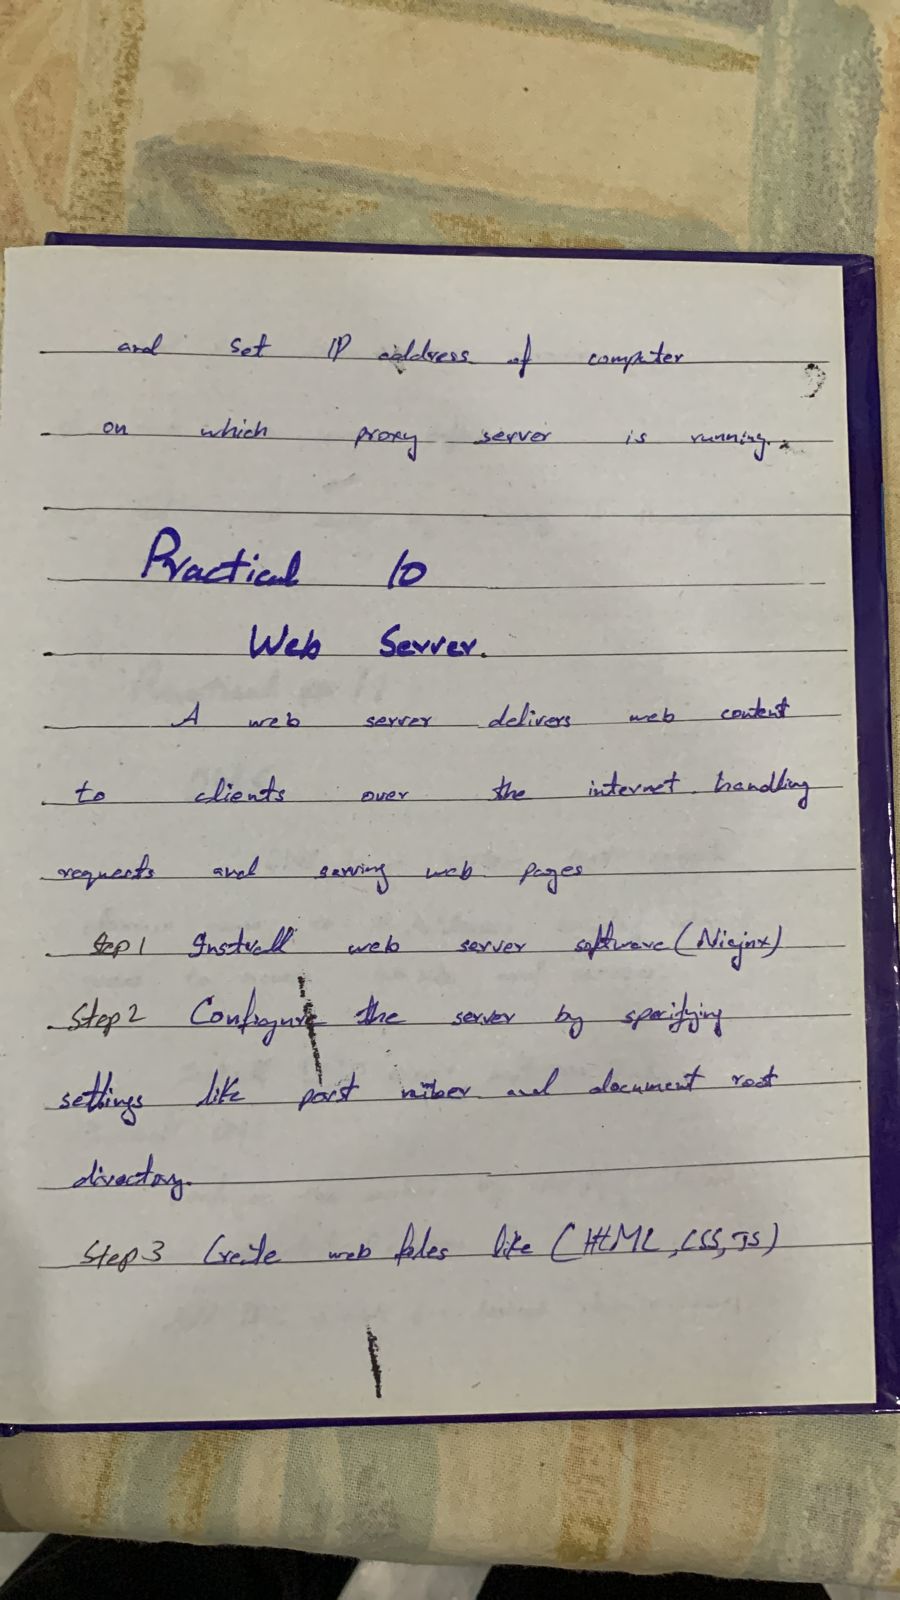 and set IP address of computer
on which proxy server is running.
Practical 10
Web Server.
A web server delivers web content
to clients over the internet handling
requests and serving web pages
Step 1 Install web server software (Niginx)
Step 2 Configure the server by specifying
settings like port number and document root
directory.
Step 3 Create web files like (HTML, CSS, JS)